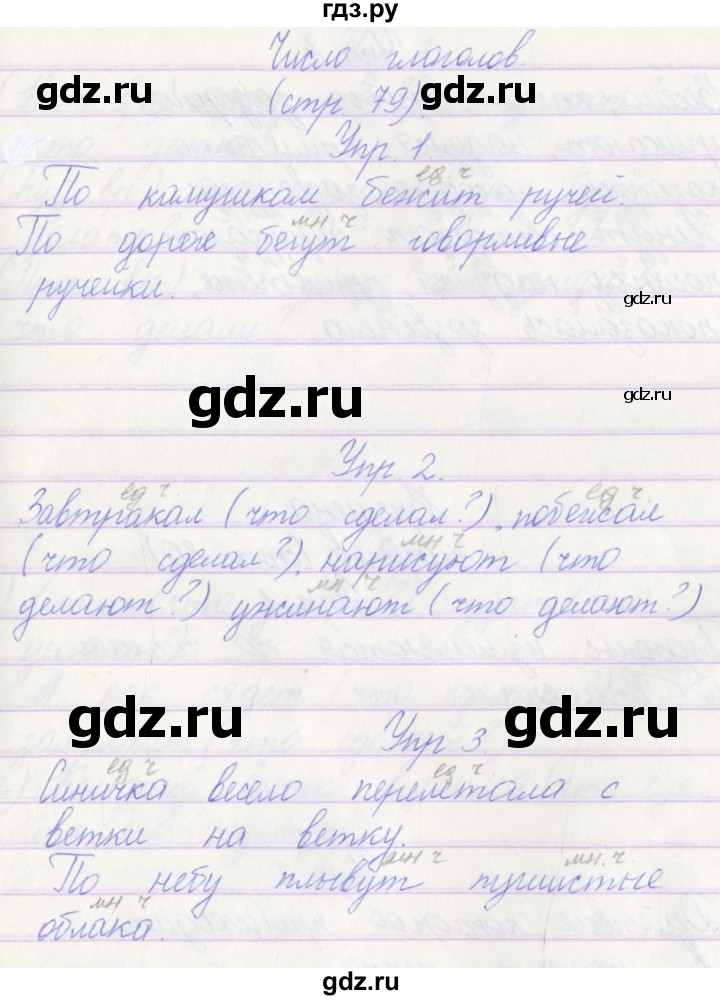 гдз.ру
Число глаголов.
gdz.ru
(стр. 79)
gdz.ru
Упр. 1.
ед. ч
По камушкам бежит ручей.
мн. ч
По дороге бегут говорливые
ручейки.
gdz.ru
gdz.ru
gdz.ru
Упр. 2.
ед. ч. ед. ч.
Завтракал (что сделал?), побежал
мн. ч
(что сделал?), нарисуют (что
мн. ч
делают?) ужинают (что делают?)
gdz.ru
gdz.ru
Упр 3
ед ч ед ч.
Синичка весело перелетала с
ветки на ветку.
мн ч мн. ч.
По небу плывут пушистые
мн ч
облака.
gdz.ru